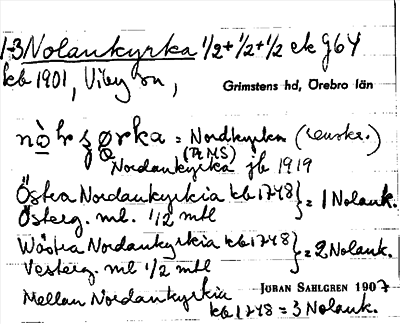 1-3 Nolankyrka 1/2+1/2+1/2 ek G64
kb 1901, Viby sn,
Grimstens hd, Örebro län
= Nordkyrkan
(Pr MS)
Nordankyrka jb 1919
Östra Nordankyrkia kb 1748 } = 1 Nolank.
Österg. ml. 1/2 mtl
Wästra Nordankyrkia kb 1748 } = 2 Nolank.
Vesterg. ml 1/2 mtl
Mellan Nordankyrkia
kb 1748 = 3 Nolank.
JÖRAN SAHLGREN 1907